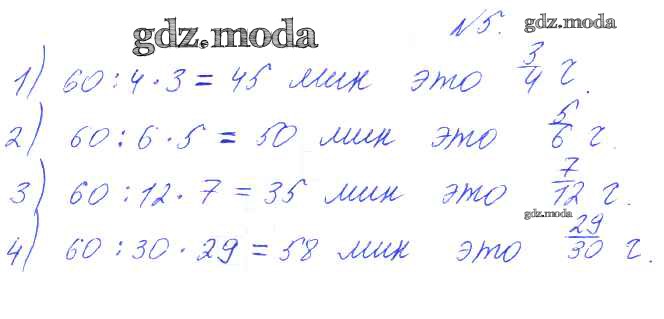 №5. gdz.moda
gdz.moda
1) 60 : 4 · 3 = 45 мин это 3/4 ч.
2) 60 : 6 · 5 = 50 мин это 5/6 ч.
3) 60 : 12 · 7 = 35 мин это 7/12 ч.
gdz.moda
4) 60 : 30 · 29 = 58 мин это 29/30 ч.